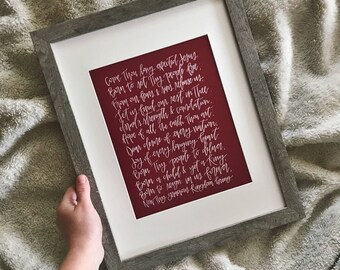 Come, Thou long expected Jesus
Born to set Thy people free;
From our fears & sins release us,
Let us find our rest in Thee.
Israel's strength & consolation,
Hope of all the earth Thou art;
Dear desire of every nation,
Joy of every longing heart.
Born Thy people to deliver,
Born a child & yet a King,
Born to reign in us forever,
Now Thy gracious Kingdom bring.